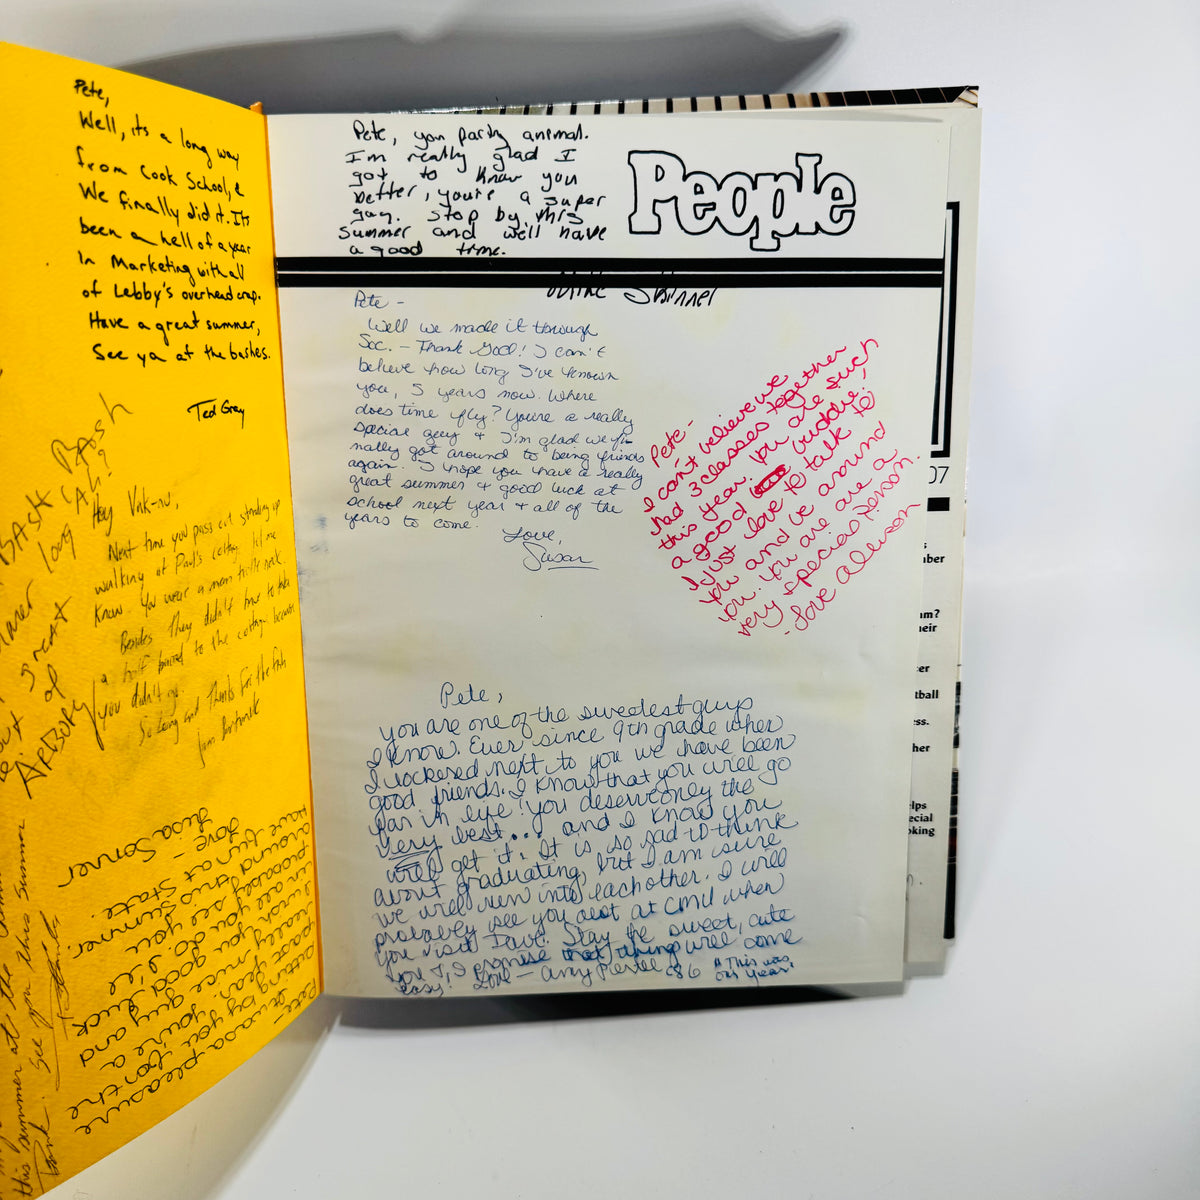 Pete,
Well, its a long way
from Cook School, &
We finally did it. Its
been a hell of a year
In Marketing with all
of Lebby's overhead crap.
Have a great summer,
See ya at the bashes.
Ted Grey
Hey
Next time you pass out standing up
walking at Paul's cottage let me
know. You were a mean
Besides they didn't have to take
a half barrel to the cottage because
you didn't go.
So long and thanks for the fish
Pete-
It was a pleasure
sitting by you for the
past year. You're a
really nice guy and
I wish you good luck
in all you do. I'll
probably see you
around this summer.
Have fun at State.
Love-
Lisa Sonner
Pete, you party animal.
I'm really glad I
got to know you
better, you're a super
guy. Stop by this
summer and we'll have
a good time.
Mike Skinner
People
Pete -
Well we made it through
Soc. - Thank God! I can't
believe how long I've known
you, 5 years now. Where
does time fly? You're a really
special guy & I'm glad we fi-
nally got around to being friends
again. I hope you have a really
great summer & good luck at
school next year & all of the
years to come.
Love,
Susan
Pete-
I can't believe we
had 3 classes together
this year. You are such
a good buddie,
I just love to talk to
you and be around
you. You are a
very special person.
- Love Allison
Pete,
you are one of the sweetest guys
I know. Ever since 9th grade when
I lockered next to you we have been
good friends. I know that you will go
far in life! You deserve only the
very best... and I know you
will get it. It is so sad to think
about graduating, but I am sure
we will run into each other. I will
probably see you out at CMU when
you visit Dave. Stay the sweet, cute
you & I promise that things will come
easy! Love - Amy Pierce '86 * This was
our year!
07
ber
am?
heir
er
tball
ess.
her
elps
ecial
oking